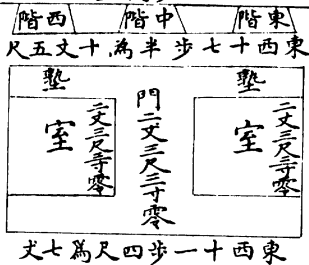 東階
中階
西階
東西十七步半為十丈五尺
塾
二丈三尺三寸零
室
門二丈三尺三寸零
塾
二丈三尺三寸零
室
東西十一步四尺爲七丈